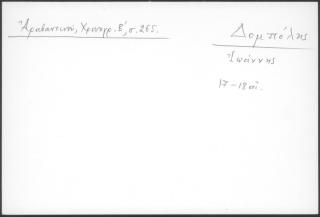 Ἀραβαντινοῦ, Χρονογρ. Β', σ. 265.
Δομπόλης
Ἰωάννης
17-18 αἰ.